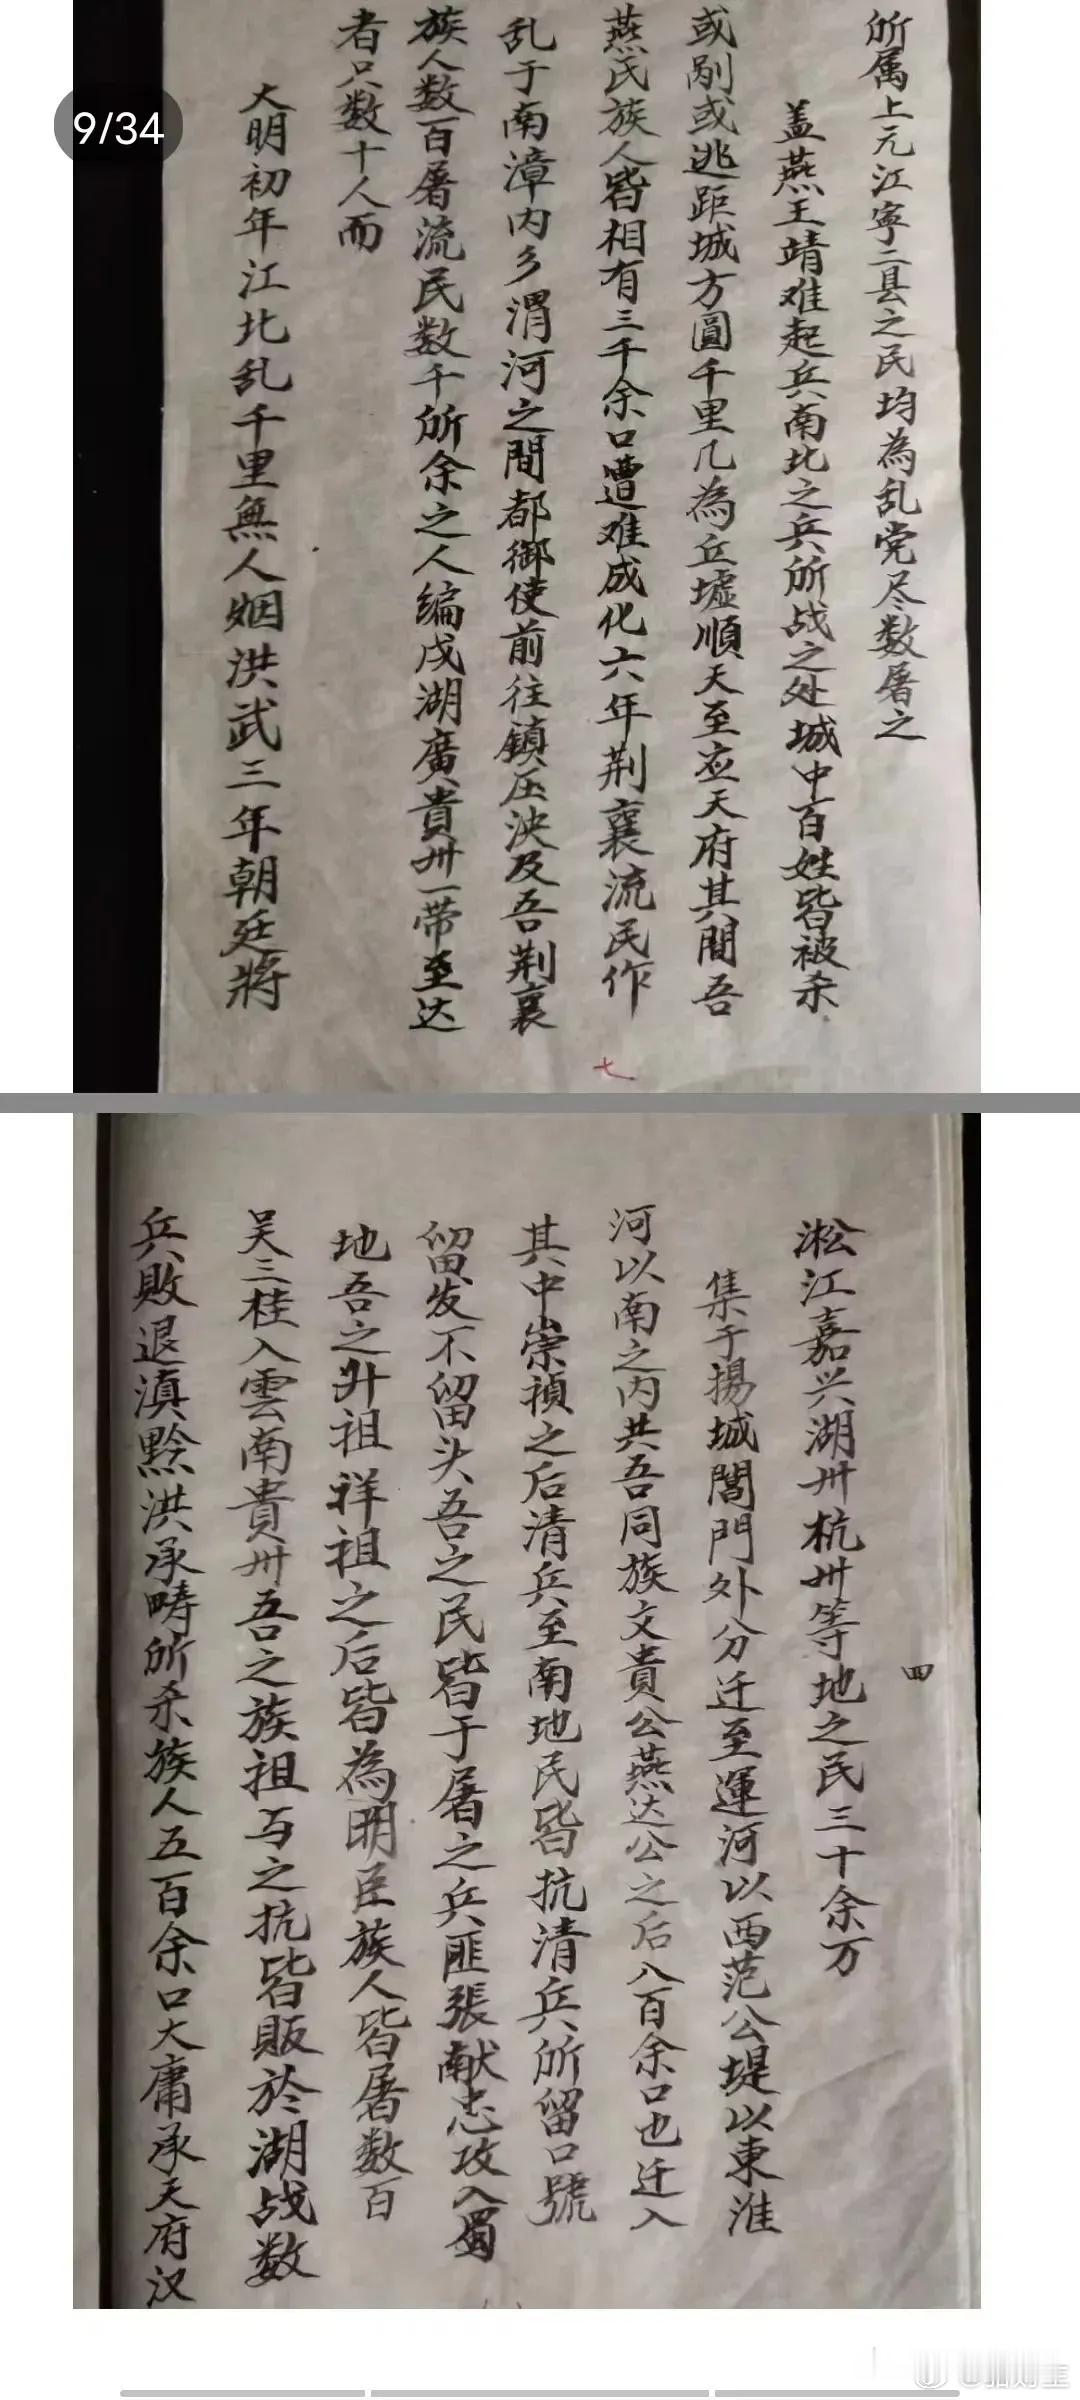 9/34
所属上元江寧二县之民均為乱党尽数屠之
盖燕王靖难起兵南北之兵所战之处城中百姓皆被杀
或剐或逃距城方圓千里几為丘墟順天至应天府其間吾
燕氏族人皆相有三千余口遭难成化六年荆襄流民作
乱于南漳内乡渭河之間都御使前往鎮压泱及吾荆襄
族人数百屠流民数千所余之人编戍湖廣貴州一带至达
者只数十人而
大明初年江北乱千里無人烟洪武三年朝廷將
七
淞江嘉兴湖州杭州等地之民三十余万
四
集于揚城閶門外分迁至運河以西范公堤以東淮
河以南之内共吾同族文貴公燕达公之后八百余口也迁入
其中崇禎之后清兵至南地民皆抗清兵所留口號
留发不留头吾之民皆于屠之兵匪張献忠攻入蜀
地吾之升祖祥祖之后皆為明臣族人皆屠数百
吴三桂入雲南貴州吾之族祖与之抗皆販於湖战数
兵敗退滇黔洪承畴所杀族人五百余口大庸承天府汉